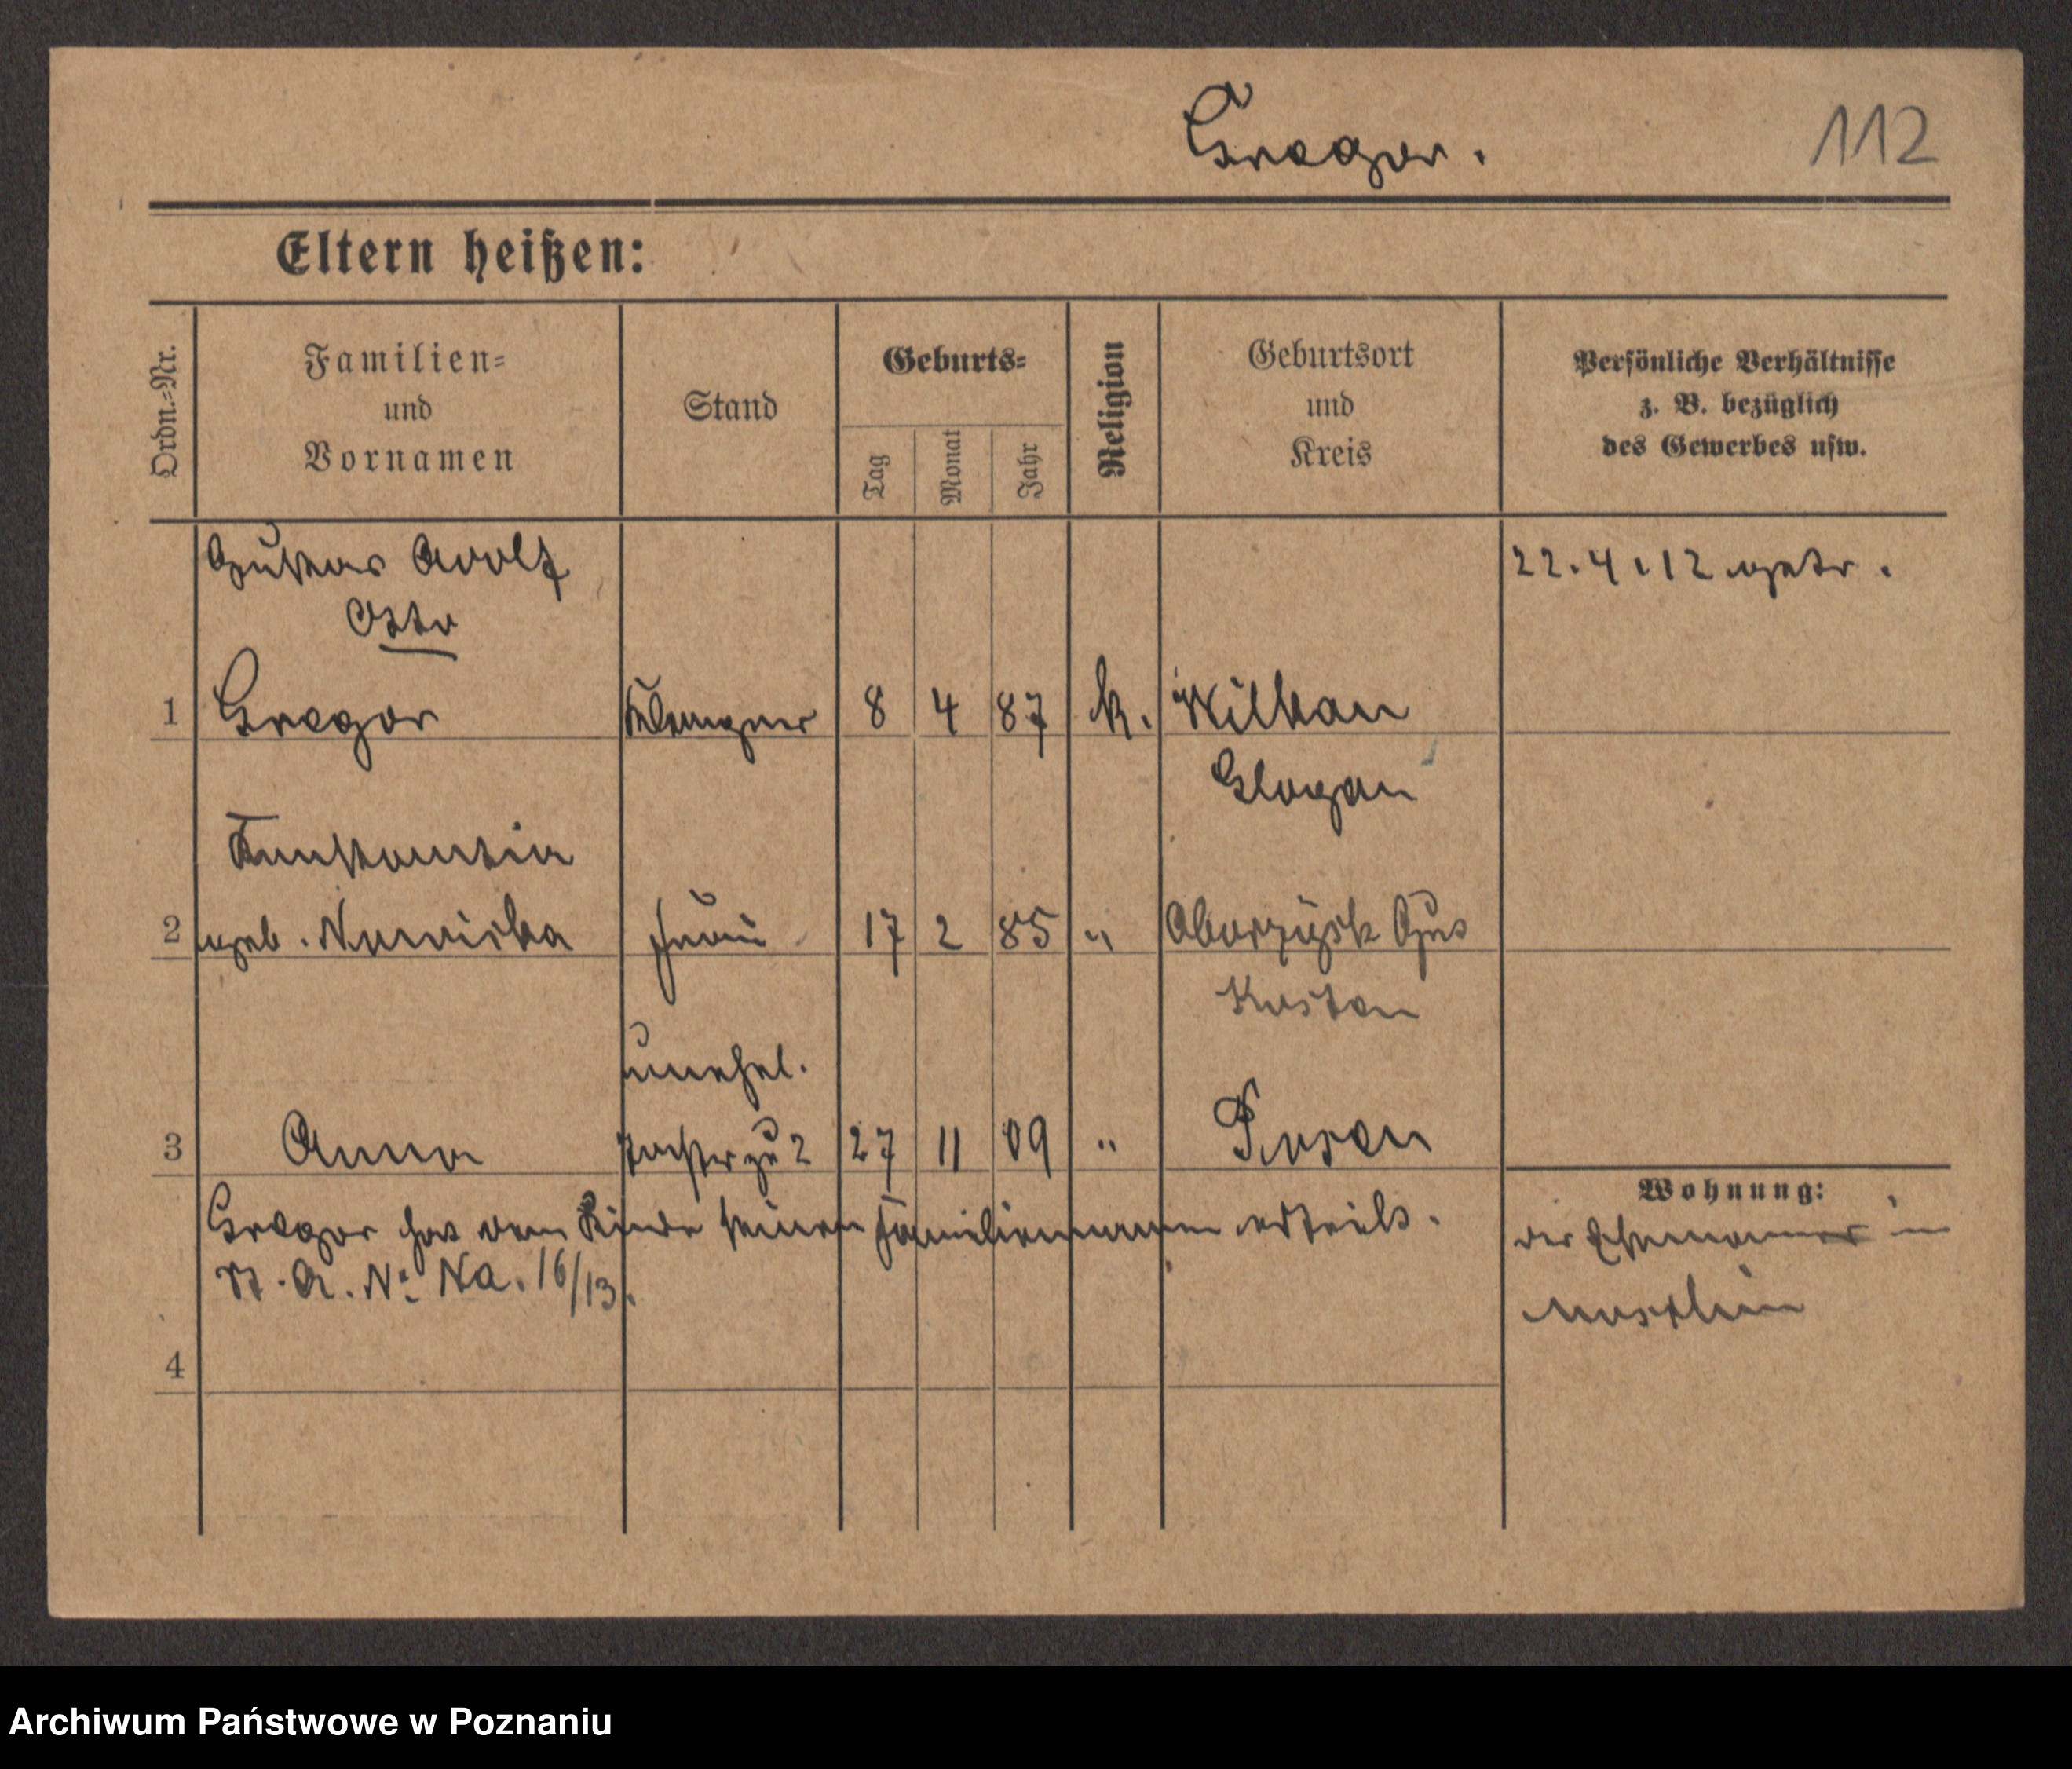 Gregor.
112
Eltern heißen:
Ordn.-Nr.
Familien- und Vornamen
Stand
Geburts-
Tag
Monat
Jahr
Religion
Geburtsort und Kreis
Persönliche Verhältnisse z. B. bezüglich des Gewerbes usw.
Gustav Adolf
Otto
22.4.12 getr.
1 Gregor Klempner 8 4 87 k. Wilkau
Glogau
Konstantia
2 geb. Nowicka Frau 17 2 85 " Oborzysk Gus
Kosten
unehel.
3 Anna Tochter zu 2 27 11 09 " Posen
Gregor hat dem Kinde seinen Familiennamen erteilt.
St. A. No. Na. 16/13.
Wohnung:
der Ehemänner in
4
Archiwum Państwowe w Poznaniu